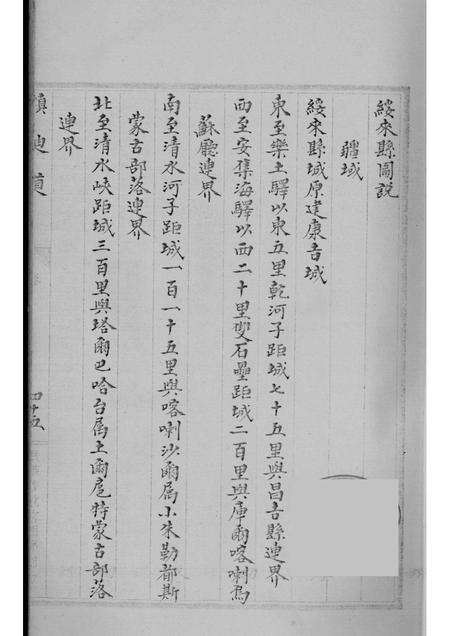 綏來縣圖說
疆域
綏來縣城原建康吉城
東至樂土驛以東五里乾河子距城七十五里與昌吉縣連界
西至安集海驛以西二十里雙石壘距城二百里與庫爾喀喇烏
蘇廳連界
南至清水河子距城一百一十五里與喀喇沙爾屬小朱勒都斯
蒙古部落連界
北至清水峽距城三百里與塔爾巴哈台屬土爾扈特蒙古部落
連界
鎮迪道
四十五